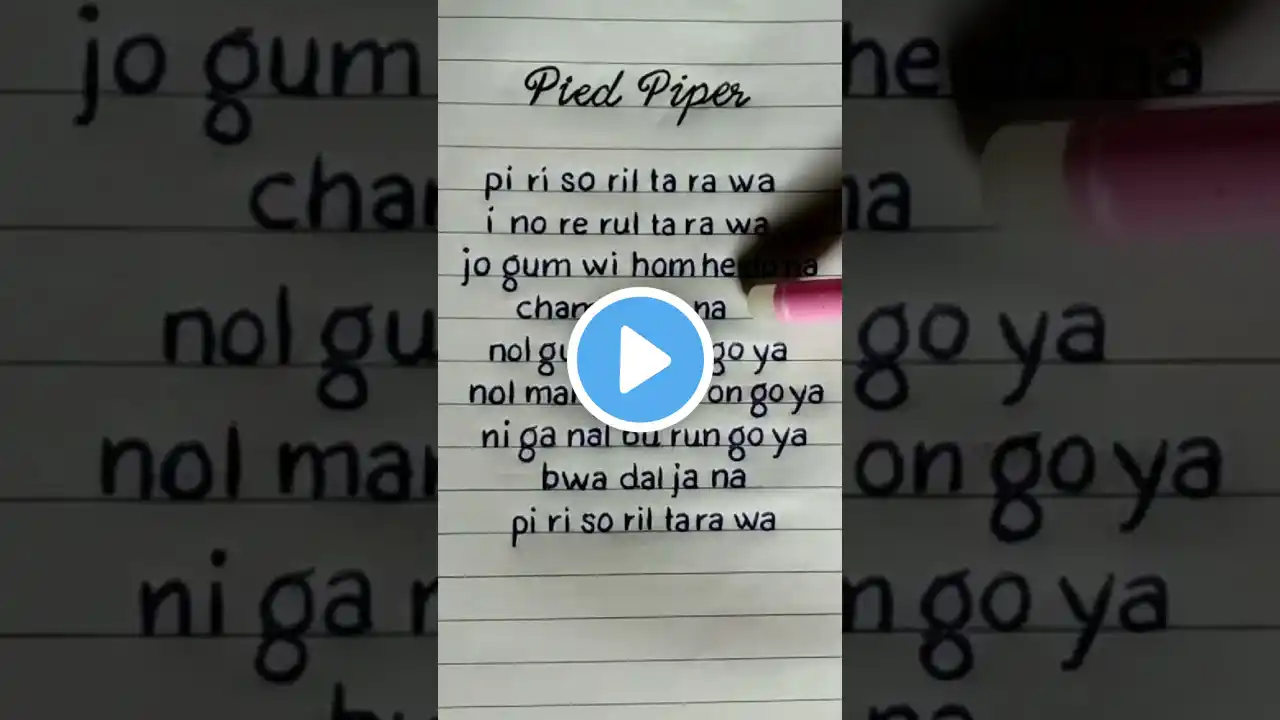 Pied Piper
pi ri so ril ta ra wa
i no re rul ta ra wa
jo gum wi
na
nol go ya
nol go ya
ni ga nal bu run go ya
bwa dal ja na
pi ri so ril ta ra wa